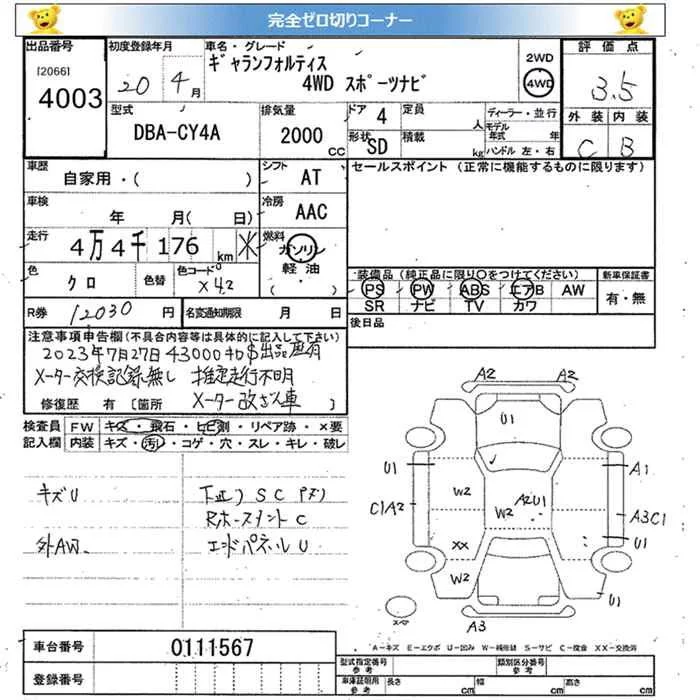 完全ゼロ切りコーナー
出品番号
[2066]
4003
初度登録年月
20 4月
車名・グレード
ギャランフォルティス
4WD スポーツナビ
2WD
4WD
評価点
3.5
外装 内装
C B
型式
DBA-CY4A
排気量
2000
CC
ドア 4
形状 SD
定員
人
積載
kg
ディーラー・並行
モデル年式 年
ハンドル 左・右
車歴
自家用・( )
シフト
AT
車検
年 月( 日)
冷房
AAC
走行
4万4千176 km ※
燃料
ガソリン
軽油
( )
色
クロ
色替
色コード
X42
R券 12030 円
名変通知期限 月 日
セールスポイント (正常に機能するものに限ります)
装備品(純正品に限り〇をつけてください)
PS PW ABS エアB AW
SR ナビ TV カワ
新車保証書
有・無
後日品
注意事項申告欄(不具合内容等は具体的に記入して下さい)
2023年7月27日43000キロS出品歴有
メーター交換記録無し 推定走行不明
修復歴 有 [箇所 メーター改ざん車 ]
検査員記入欄
FW キズ・飛石・ヒビ割・リペア跡・×要
内装 キズ・汚・コゲ・穴・スレ・キレ・破レ
キズU
外AW
下廻りSC
C
エンドパネルU
A2
A2
U1
U1
A1
C1A2
W2
W2
A2U1
A3C1
XX
U1
W2
U1
A3
スペア
A-キズ E-エクボ U-凹み W-補修跡 S-サビ C-腐食 XX-交換済
車台番号
0111567
登録番号
型式指定番号
参考
類別区分番号
車庫証明用
参考
長さ cm
幅 cm
高さ cm